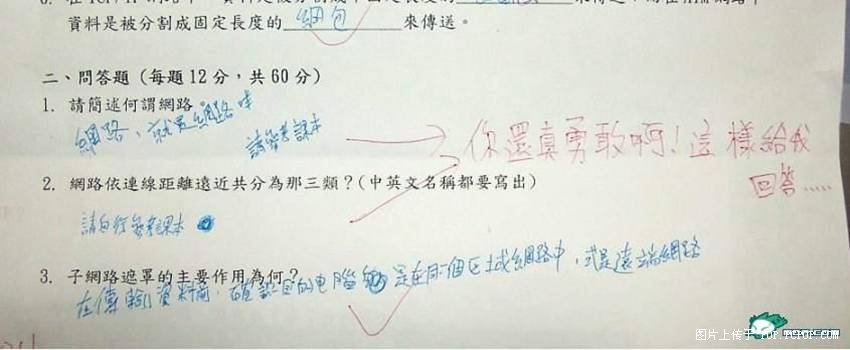 資料是被分割成固定長度的 網包 來傳送。
二、問答題（每題12分，共60分）
1. 請簡述何謂網路。
網路、就是網路呀
請參考課本
你還真勇敢啊！這樣給我
回答.....
2. 網路依連線距離遠近共分為那三類？(中英文名稱都要寫出)
請自行參考課本
3. 子網路遮罩的主要作用為何？
在傳輸資料前，確認目的电腦 是在同個區域網路中，或是遠端網路
图片上传于